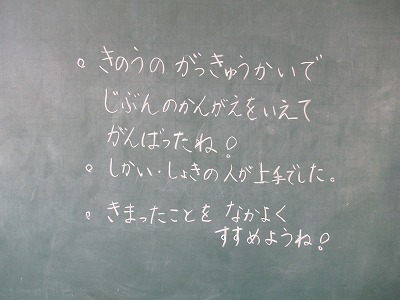 。きのうの がっきゅうかいで
じぶんのかんがえをいえて
がんばったね!
。しかい・しょきの人が上手でした。
。きまったことを なかよく
すすめようね!